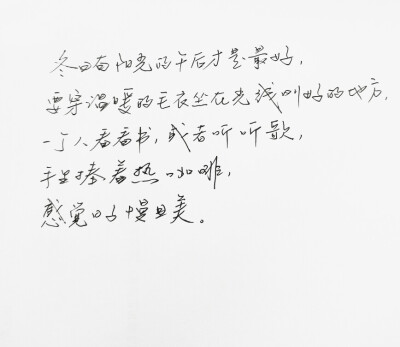 冬日有阳光的午后才是最好,
要穿温暖的毛衣坐在光线刚好的地方,
一个人看看书,或者听听歌,
手里捧着热咖啡,
感觉日子慢且美。